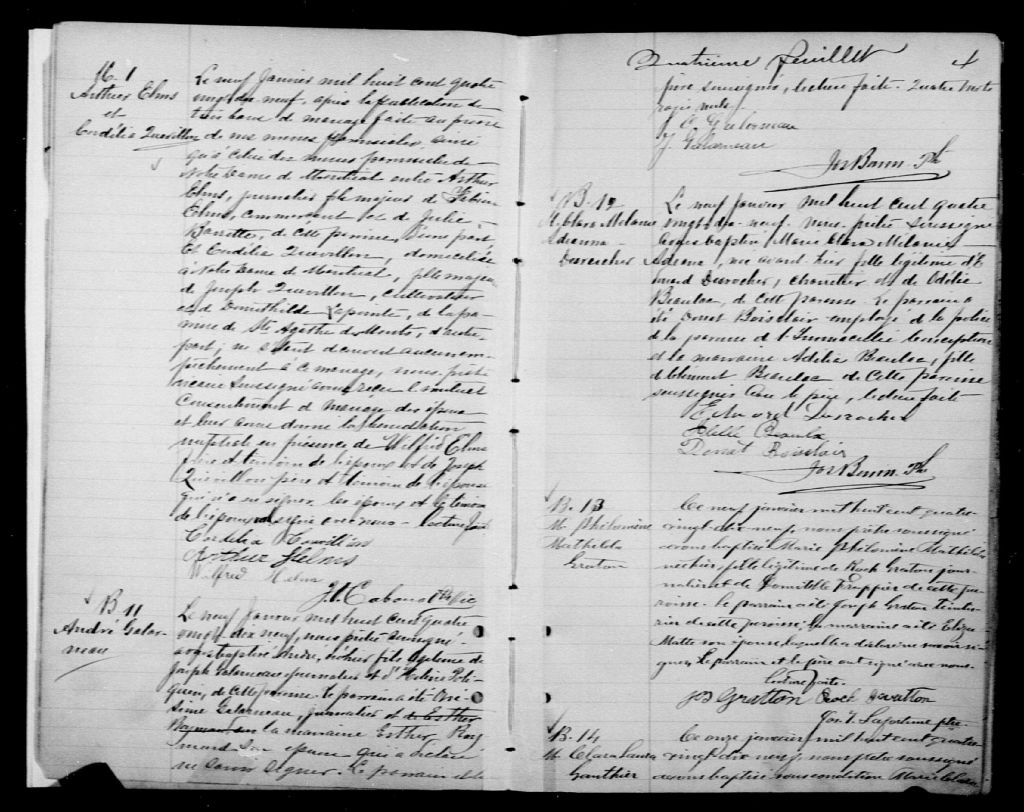 M. 1
Arthur Elms
et
Cordélia Quevillon
Le neuf Janvier mil huit cent quatre
vingt dix neuf, après la publication de
trois bans de mariage faite au prône
de nos messes paroissiales, ainsi
qu'à celui des messes paroissiales de
Notre Dame de Montréal entre Arthur
Elms, journalier fils majeur de
Elms, commerçant et de Julie
Barrette, de cette paroisse, d'une part
Et Cordélia Quevillon, domiciliée
à Notre Dame de Montréal, fille majeure
de Joseph Quevillon, cultivateur
et de Domithilde Lapointe, de la pa-
roisse de Ste Agathe des Monts, d'autre
part; ne s'étant découvert aucun em-
pêchement à ce mariage, nous prêtre
vicaire soussigné avons reçu leur mutuel
consentement de mariage des époux
et leur avons donné la bénédiction
nuptiale en présence de Wilfrid Elms
frère et témoin de l'époux et de Joseph
Quevillon père et témoin de l'épouse
qui n'a su signer. les époux et le témoin
de l'époux signé avec nous - lecture faite
Cordelia Quevillon
Arthur Helms
Wilfred Helms
Ptre Vic
B 11
André Galar-
neau
Le neuf Janvier mil huit cent quatre
vingt dix neuf, nous prêtre soussigné
avons baptisé André, né hier fils légitime de
Joseph Galarneau journalier et d'Helène
de cette paroisse. Le parrain a été
Galarneau, journalier et de Esther
Raymond la marraine Esther Ray
mond son épouse qui a déclaré
ne savoir signer. Le parrain et le
Quatrième feuillet 4
père soussignés, lecture faite. Quatre mots
rayés nuls.
Galarneau
J. Galarneau
Jos Bonin Ptre
B. 12
M. Clara Mélanie
Adrienna
Desrocher
Le neuf janvier mil huit cent quatre
vingt dix-neuf nous prêtre soussigné
avons baptisé Marie Clara Mélanie
née avant hier fille légitime d'E
douard Desrocher, charretier et de Odélie
Beaulac, de cette paroisse. Le parrain a
été Donat Boisclair employé de la police
de la paroisse de l'Immaculée Conception
et la marraine Adélia Beaulac, fille
de Clément Beaulac de cette paroisse
soussignés avec le père, lecture faite
Edouard Desrocher
Donat Boisclair
Jos Bonin Ptre
B. 13
M. Philomène
Mathilda
Graton
Ce neuf janvier mil huit cent quatre-
vingt-dix-neuf, nous prêtre soussigné
avons baptisé Marie Philomène Mathilda
née hier, fille légitime de Rock Graton jour-
nalier et de Domitilde Frappier de cette pa-
roisse. le parrain a été Joseph Graton
de cette paroisse, la marraine a été
Matte son épouse, laquelle a déclaré ne savoir si-
gner. Le parrain et le père ont signé avec nous.
lecture faite.
Gratton Rock Gratton
Jos. Lafortune ptre.
B. 14
M. Clara Laura
Gauthier
Ce onze janvier mil huit cent quatre-
vingt-dix-neuf nous prêtre soussigné
avons baptisé sous condition Marie Clara